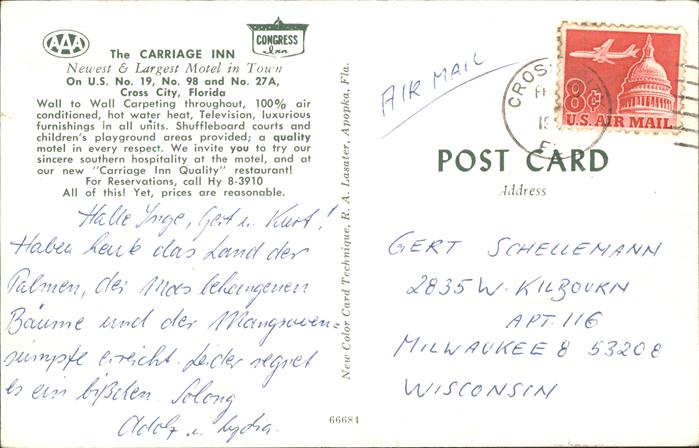 AAA
CONGRESS
Inn
The CARRIAGE INN
Newest & Largest Motel in Town
On U.S. No. 19, No. 98 and No. 27A,
Cross City, Florida
Wall to Wall Carpeting throughout, 100% air
conditioned, hot water heat, Television, luxurious
furnishings in all units. Shuffleboard courts and
children's playground areas provided; a quality
motel in every respect. We invite you to try our
sincere southern hospitality at the motel, and at
our new "Carriage Inn Quality" restaurant!
For Reservations, call Hy 8-3910
All of this! Yet, prices are reasonable.
Hallo Inge, Gert u. Kurt!
Haben heute das Land der
Palmen, der Moos behangenen
Bäume und der Mangroven=
sümpfe erreicht. Leider regnet
es ein bißchen. Solong
Adolf u. Lydia.
New Color Card Technique, R. A. Lasater, Apopka, Fla.
66684
AIR MAIL
CROSS
8¢
U.S. AIR MAIL
POST CARD
Address
GERT SCHELLEMANN
2835 W. KILBOURN
APT. 116
MILWAUKEE 8 53208
WISCONSIN